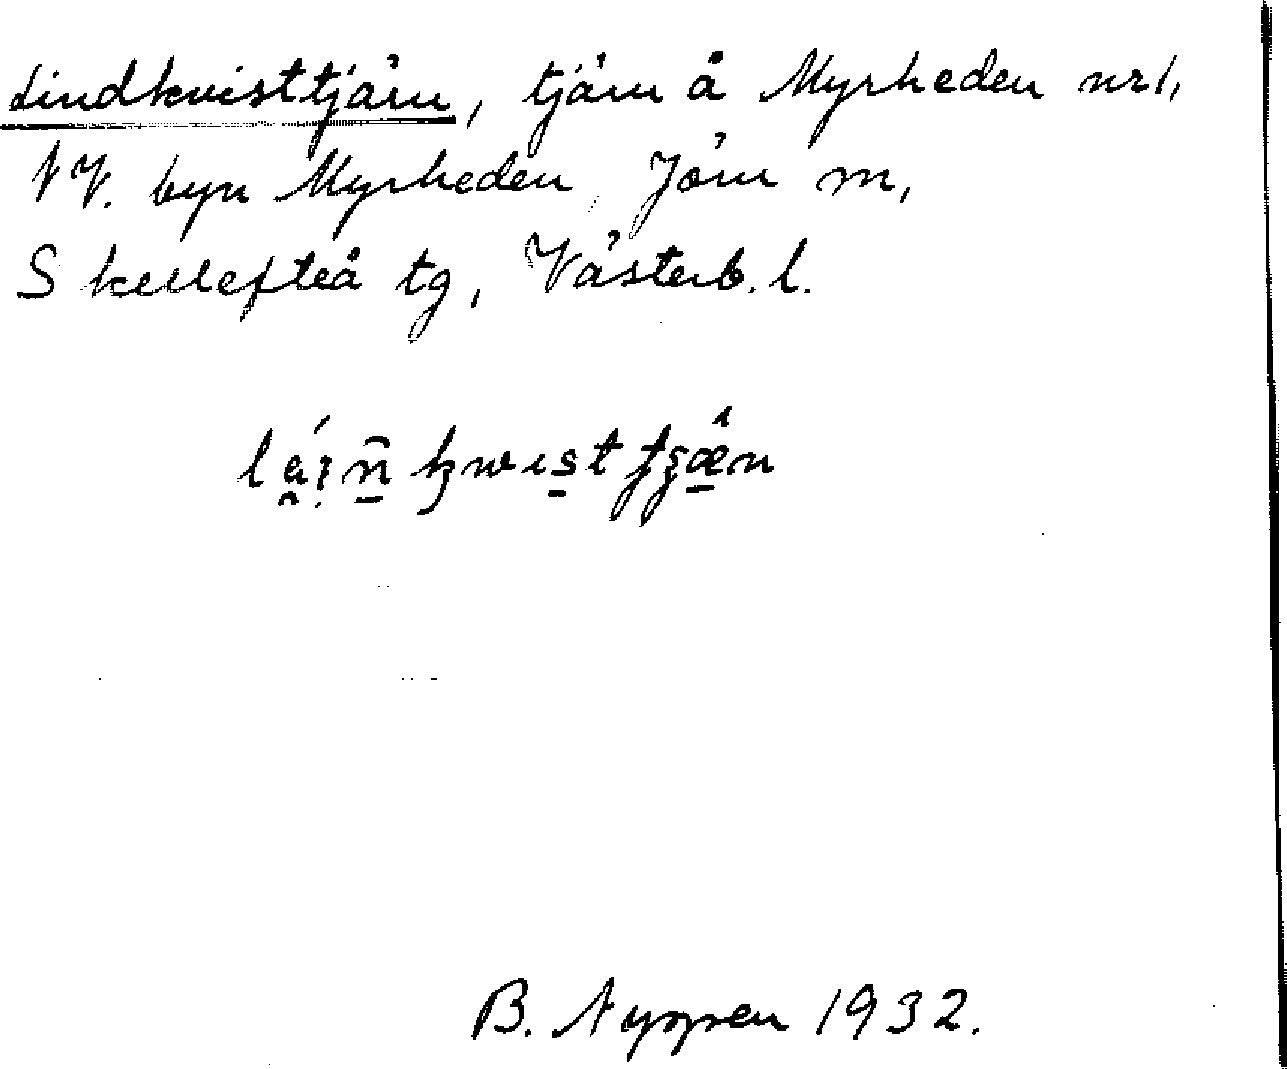 Lindkvisttjärn, tjärn å Myrheden nr 1,
NV. byn Myrheden, Jörn sn,
Skellefteå tg, Västerb. l.
B. Nyppen 1932.